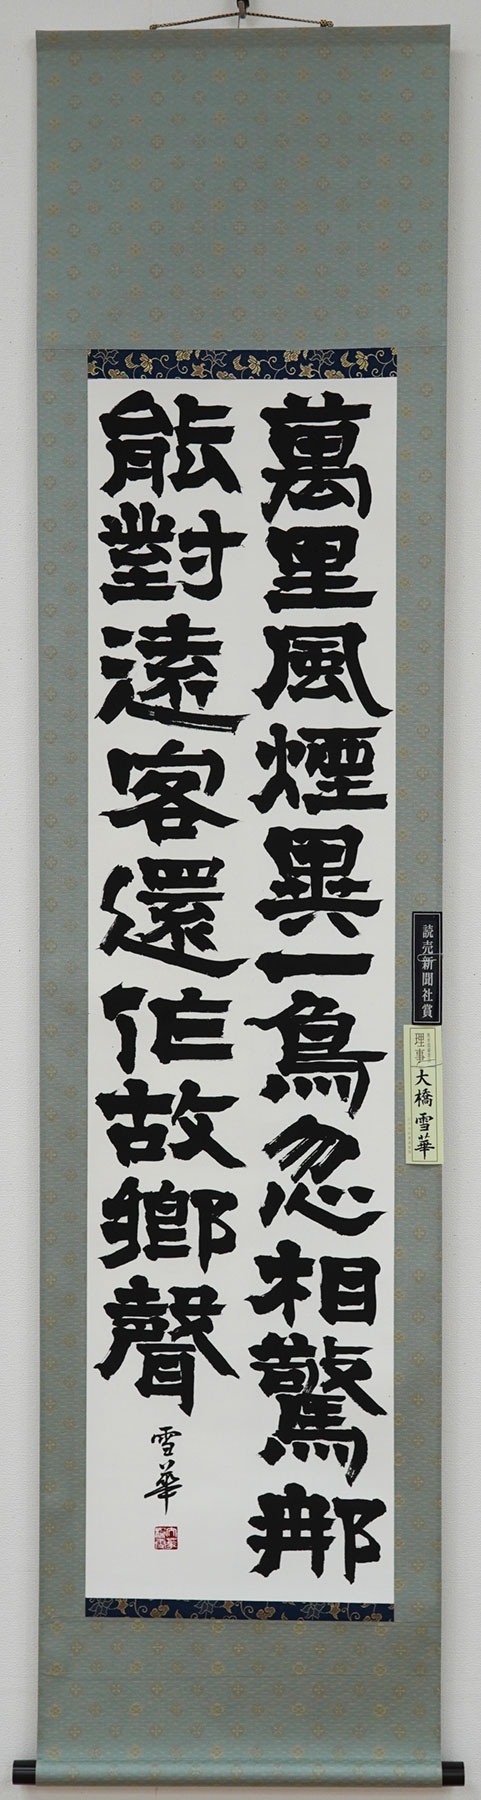 萬里風煙異一鳥忽相驚那
能對遠客還作故鄉聲
雪華
読売新聞社賞
理事
大橋雪華